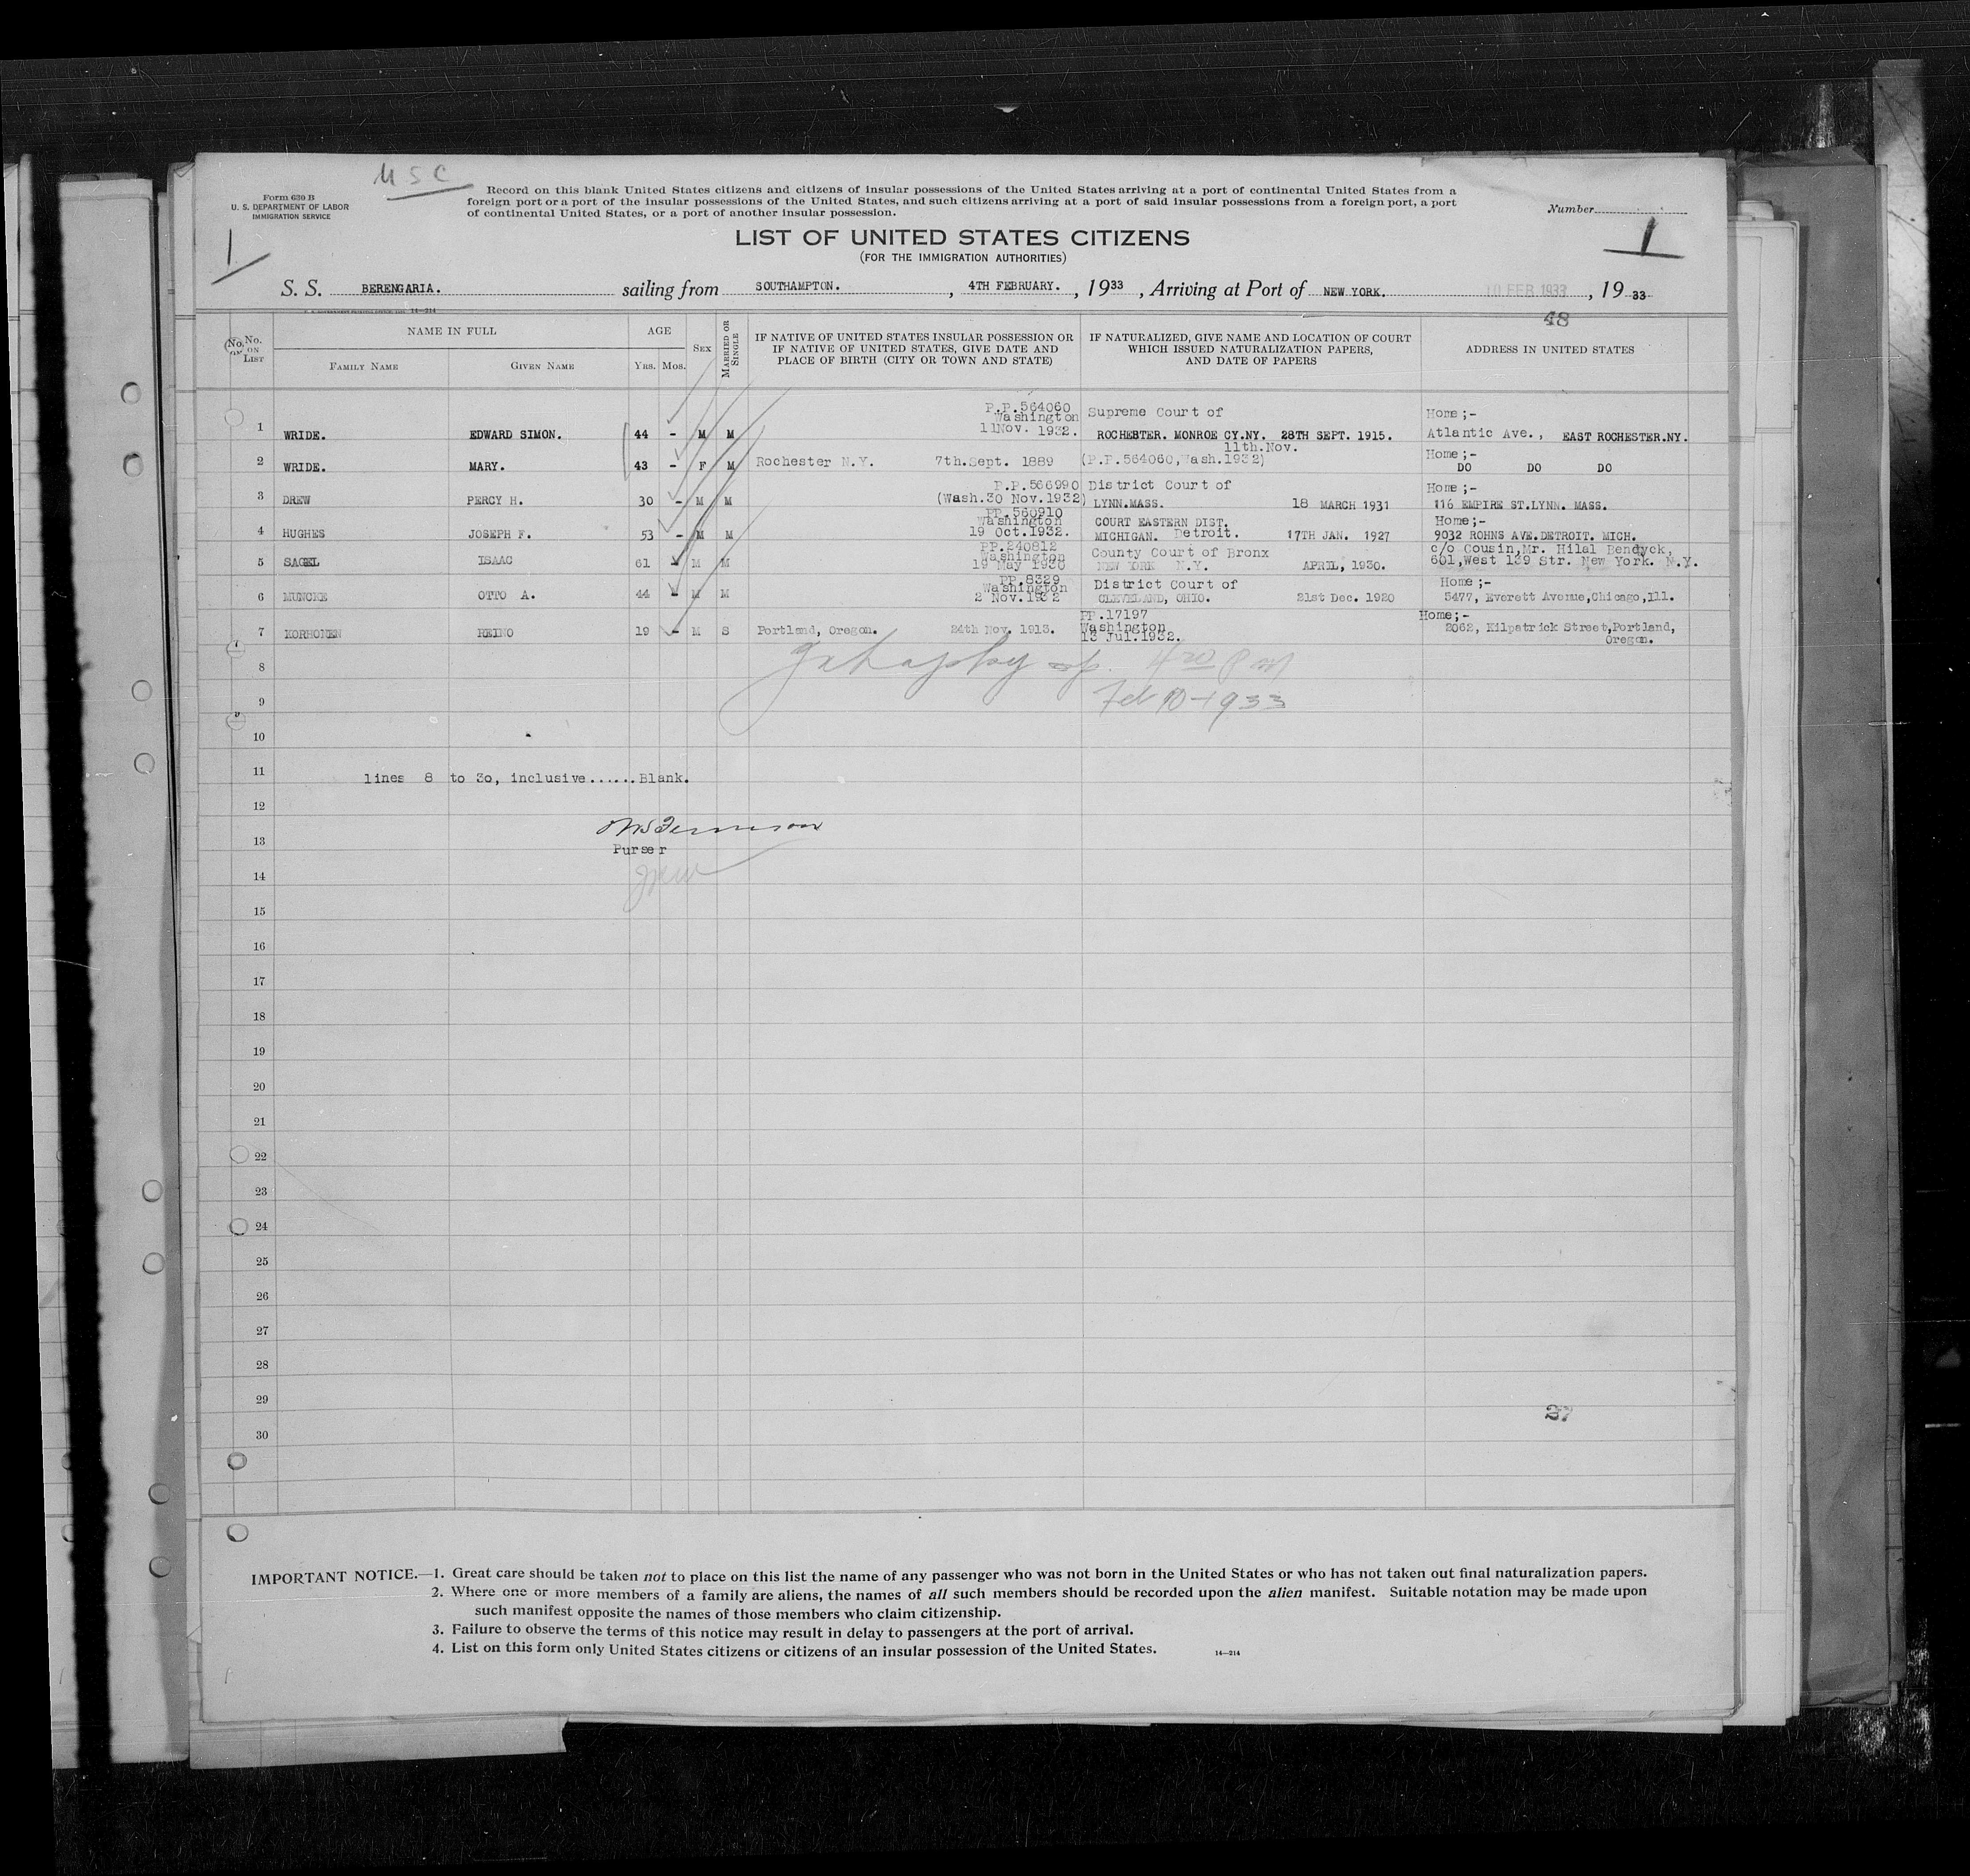 U S C
Form 630 B
U. S. DEPARTMENT OF LABOR
IMMIGRATION SERVICE
Record on this blank United States citizens and citizens of insular possessions of the United States arriving at a port of continental United States from a
foreign port or a port of the insular possessions of the United States, and such citizens arriving at a port of said insular possessions from a foreign port, a port
of continental United States, or a port of another insular possession.
Number
1
1
LIST OF UNITED STATES CITIZENS
(FOR THE IMMIGRATION AUTHORITIES)
S. S. BERENGARIA. sailing from SOUTHAMPTON. , 4TH FEBRUARY. , 1933 , Arriving at Port of NEW YORK. 10 FEB 1933 , 19 33
14—214
48
No. ON LIST
NAME IN FULL
FAMILY NAME
GIVEN NAME
AGE
YRS. MOS.
SEX
MARRIED OR SINGLE
IF NATIVE OF UNITED STATES INSULAR POSSESSION OR
IF NATIVE OF UNITED STATES, GIVE DATE AND
PLACE OF BIRTH (CITY OR TOWN AND STATE)
IF NATURALIZED, GIVE NAME AND LOCATION OF COURT
WHICH ISSUED NATURALIZATION PAPERS,
AND DATE OF PAPERS
ADDRESS IN UNITED STATES
P.P.564060 Supreme Court of Home;-
Washington
11Nov. 1932.
1 WRIDE. EDWARD SIMON. 44 - M M ROCHESTER. MONROE CY.NY. 28TH SEPT. 1915. Atlantic Ave., EAST ROCHESTER.NY.
11th.Nov.
2 WRIDE. MARY. 43 - F M Rochester N.Y. 7th.Sept. 1889 (P.P.564060,Wash.1932) Home;-
DO DO DO
P.P.566990 District Court of Home;-
3 DREW PERCY H. 30 - M M (Wash.30 Nov.1932) LYNN.MASS. 18 MARCH 1931 116 EMPIRE ST.LYNN. MASS.
PP.560910
Washington COURT EASTERN DIST. Home;-
4 HUGHES JOSEPH F. 53 - M M 19 Oct.1932. MICHIGAN. Detroit. 17TH JAN. 1927 9032 ROHNS AVE.DETROIT. MICH.
PP.240812
Washington County Court of Bronx c/o Cousin,Mr. Hilal Bendyck,
5 SAGEL ISAAC 61 - M M 19 May 1930 NEW YORK N.Y. APRIL, 1930. 601,West 139 Str. New York. N.Y.
PP.8329
Washington District Court of Home;-
6 MUNCKE OTTO A. 44 - M M 2 Nov.1932 CLEVELAND, OHIO. 21st Dec. 1920 5477, Everett Avenue,Chicago,Ill.
PP.17197 Home;-
Washington
7 KORHONEN REINO 19 - M S Portland, Oregon. 24th Nov. 1913. 13 Jul.1932. 2062, Kilpatrick Street,Portland,
Oregon.
8
Feb 10-1933
9
10
11 lines 8 to 30, inclusive......Blank.
12
13
Purser
14
15
16
17
18
19
20
21
22
23
24
25
26
27
28
29
27
30
IMPORTANT NOTICE.—1. Great care should be taken not to place on this list the name of any passenger who was not born in the United States or who has not taken out final naturalization papers.
2. Where one or more members of a family are aliens, the names of all such members should be recorded upon the alien manifest. Suitable notation may be made upon
such manifest opposite the names of those members who claim citizenship.
3. Failure to observe the terms of this notice may result in delay to passengers at the port of arrival.
4. List on this form only United States citizens or citizens of an insular possession of the United States.
14—214